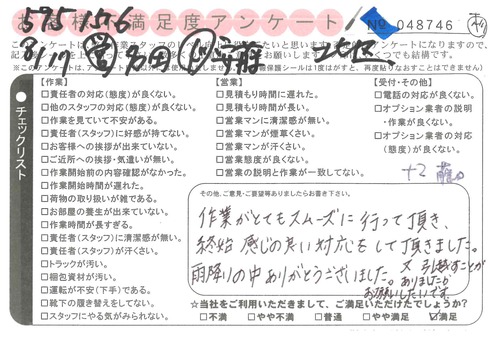 お客様満足度アンケート No 048746
595 1576
8/17
チェックリスト
【作業】
□責任者の対応(態度)が良くない。
□他のスタッフの対応(態度)が良くない。
□作業を見ていて不安がある。
□責任者(スタッフ)に好感が持てない。
□お客様への挨拶が出来ていない。
□ご近所への挨拶・気遣いが無い。
□作業開始前の内容確認がなかった。
□作業開始時間が遅れた。
□荷物の取り扱いが雑である。
□お部屋の養生が出来ていない。
□作業時間が長すぎる。
□責任者(スタッフ)に清潔感が無い。
□責任者(スタッフ)が汗くさい。
□トラックが汚い。
□梱包資材が汚い。
□運転が不安(下手)である。
□靴下の履き替えをしてない。
□スタッフにやる気がみられない。
【営業】
□見積もり時間に遅れた。
□見積もり時間が長い。
□営業マンに清潔感が無い。
□営業マンが煙草くさい。
□営業マンが汗くさい。
□営業態度が良くない。
□営業の説明と作業が一致してない。
【受付・その他】
□電話の対応が良くない。
□オプション業者の説明・作業が良くない。
□オプション業者の対応(態度)が良くない。
その他、ご意見・ご要望等ありましたらお書き下さい。
作業がとてもスムーズに行って頂き、
終始 感じの良い対応をして頂きました。
雨降りの中ありがとうございました。又 引越すことが
ありましたが
お願いしたいです。
☆当社をご利用いただきまして、ご満足いただけたでしょうか?
□不満 □やや不満 □普通 □やや満足 ☑満足